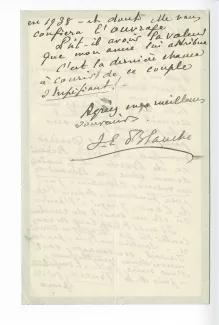 en 1938 - et dont elle vous
confiera l'ouvrage.
Eût-il avoir la valeur
que mon amie lui attribue
C'est la dernière chance
à courir de ce couple
Agréez mes meilleurs
souvenirs.
J-E Blanche